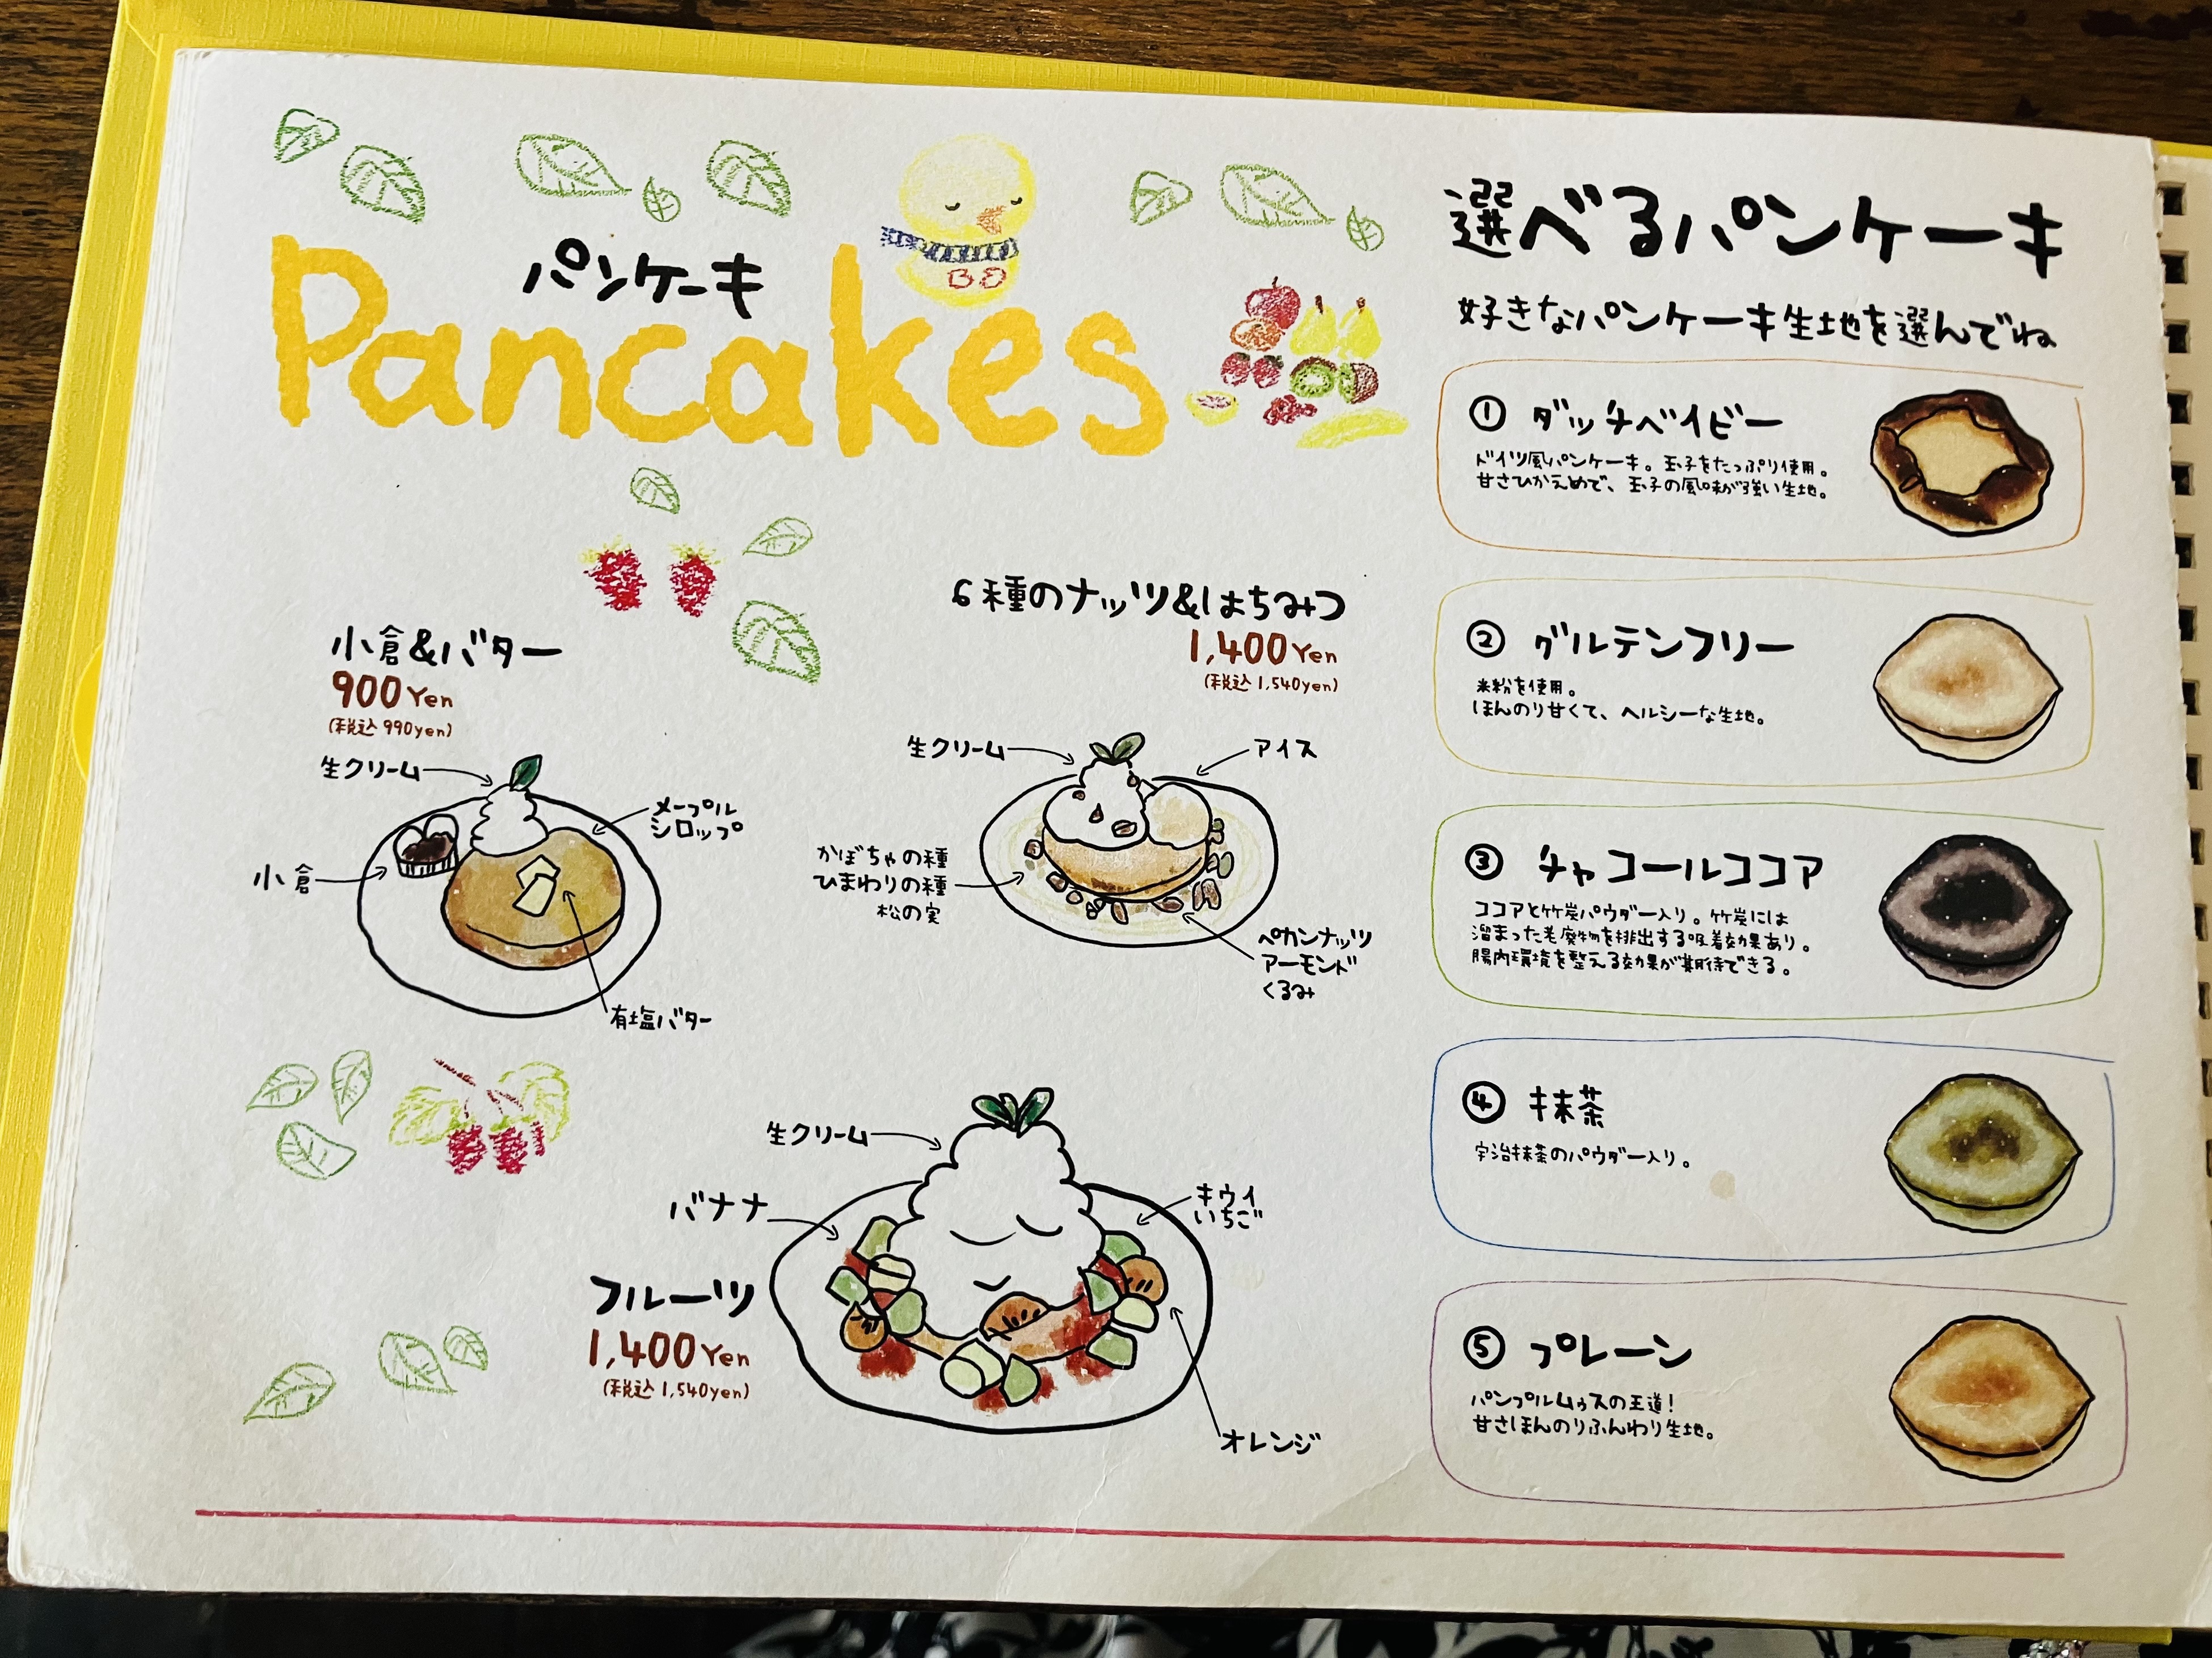 パンケーキ
Pancakes
BO
小倉&バター
900Yen
(税込 990yen)
生クリーム
メープル
シロップ
小倉
有塩バター
6種のナッツ&はちみつ
1,400Yen
(税込 1,540yen)
生クリーム
アイス
かぼちゃの種
ひまわりの種
松の実
ペカンナッツ
アーモンド
くるみ
フルーツ
1,400Yen
(税込 1,540yen)
生クリーム
バナナ
キウイ
いちご
オレンジ
選べるパンケーキ
好きなパンケーキ生地を選んでね
① ダッチベイビー
ドイツ風パンケーキ。玉子をたっぷり使用。
甘さひかえめで、玉子の風味が強い生地。
② グルテンフリー
米粉を使用。
ほんのり甘くて、ヘルシーな生地。
③ チャコールココア
ココアと竹炭パウダー入り。竹炭には
溜まった老廃物を排出する吸着効果あり。
腸内環境を整える効果が期待できる。
④ 抹茶
宇治抹茶のパウダー入り。
⑤ プレーン
パンプルムゥスの王道！
甘さほんのりふんわり生地。